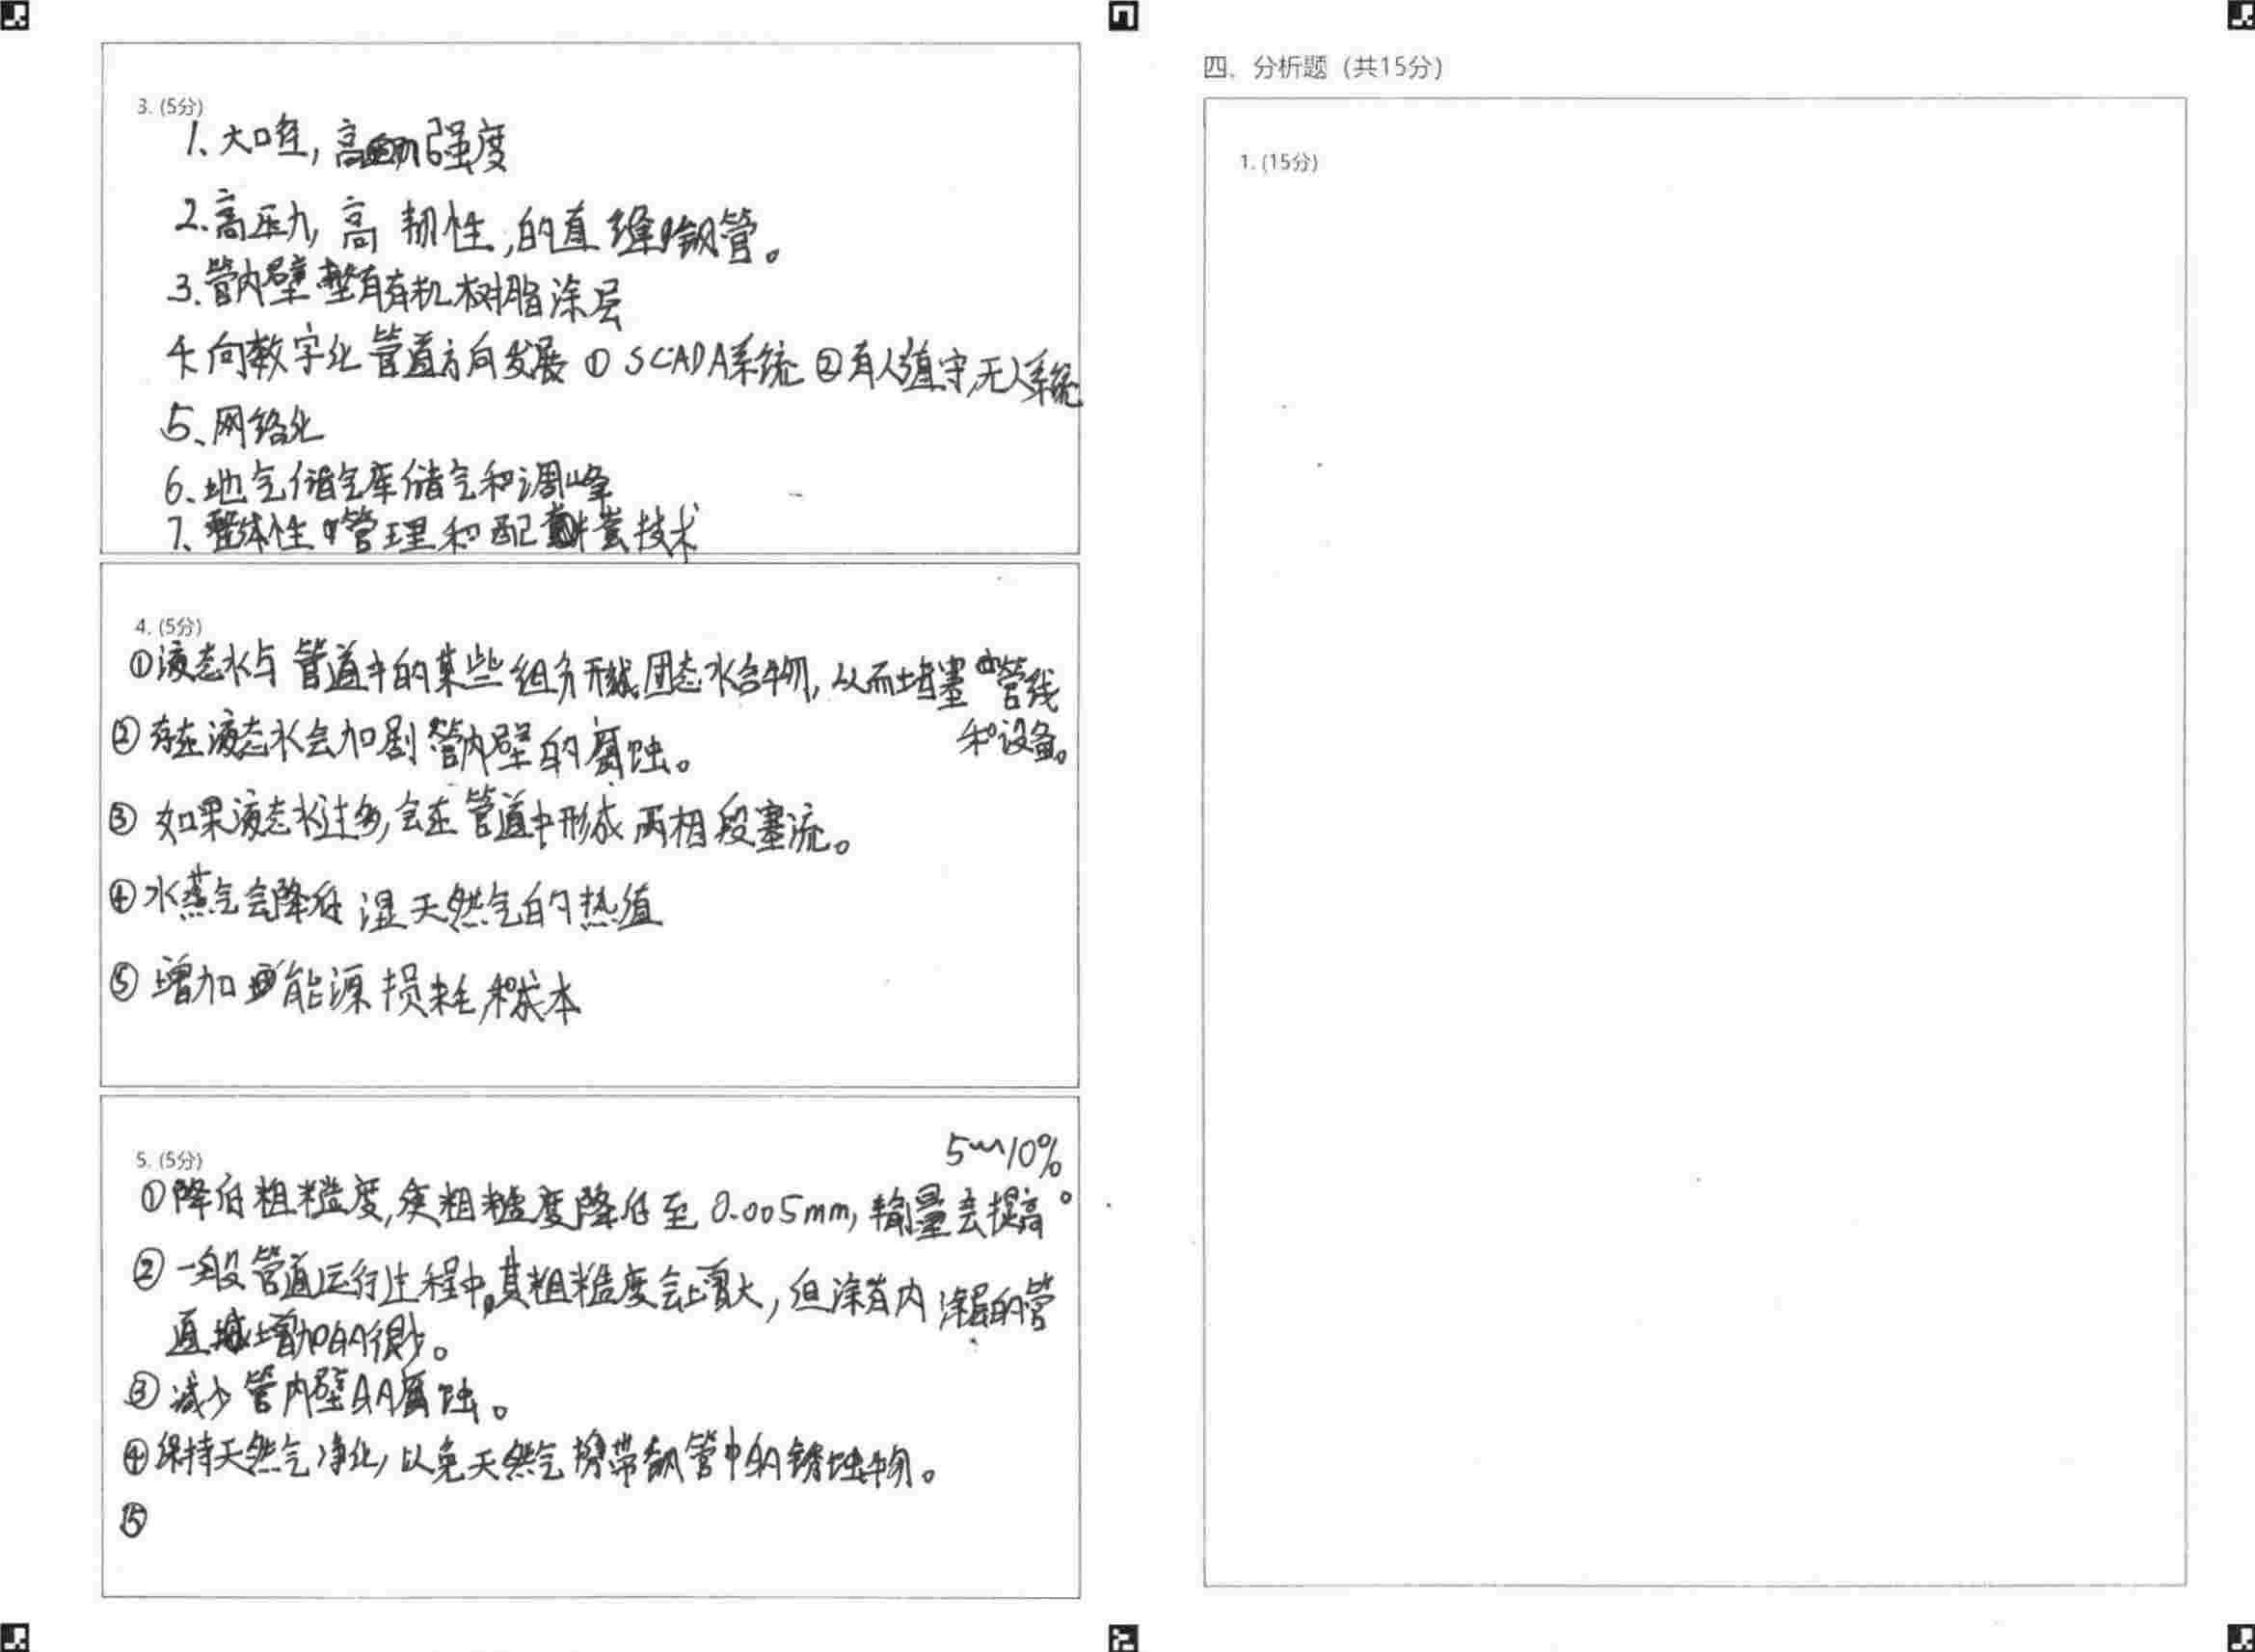 3. (5分)
1、大口径,高强度
2.高压力,高韧性,的直缝钢管。
3.管内壁有有机树脂涂层
4.向数字化管道方向发展 ① SCADA系统 ②有人值守,无人系统
5、网络化
6、地气储气库储气和调峰
7、整体性管理和配套技术
4. (5分)
①液态水与管道中的某些组分形成固态水合物,从而堵塞管线
和设备。
②存在液态水会加剧管内壁的腐蚀。
③如果液态水过多,会在管道中形成两相段塞流。
④水蒸气会降低湿天然气的热值
⑤增加能源损耗和成本
5. (5分)
5~10%
①降低粗糙度,使粗糙度降低至0.005mm,输量会提高。
②一般管道运行过程中,其粗糙度会增大,但涂有内涂层的管
道增加的很少。
③减少管内壁的腐蚀。
④保持天然气净化,以免天然气携带钢管中的锈蚀物。
⑤
四、分析题(共15分)
1. (15分)